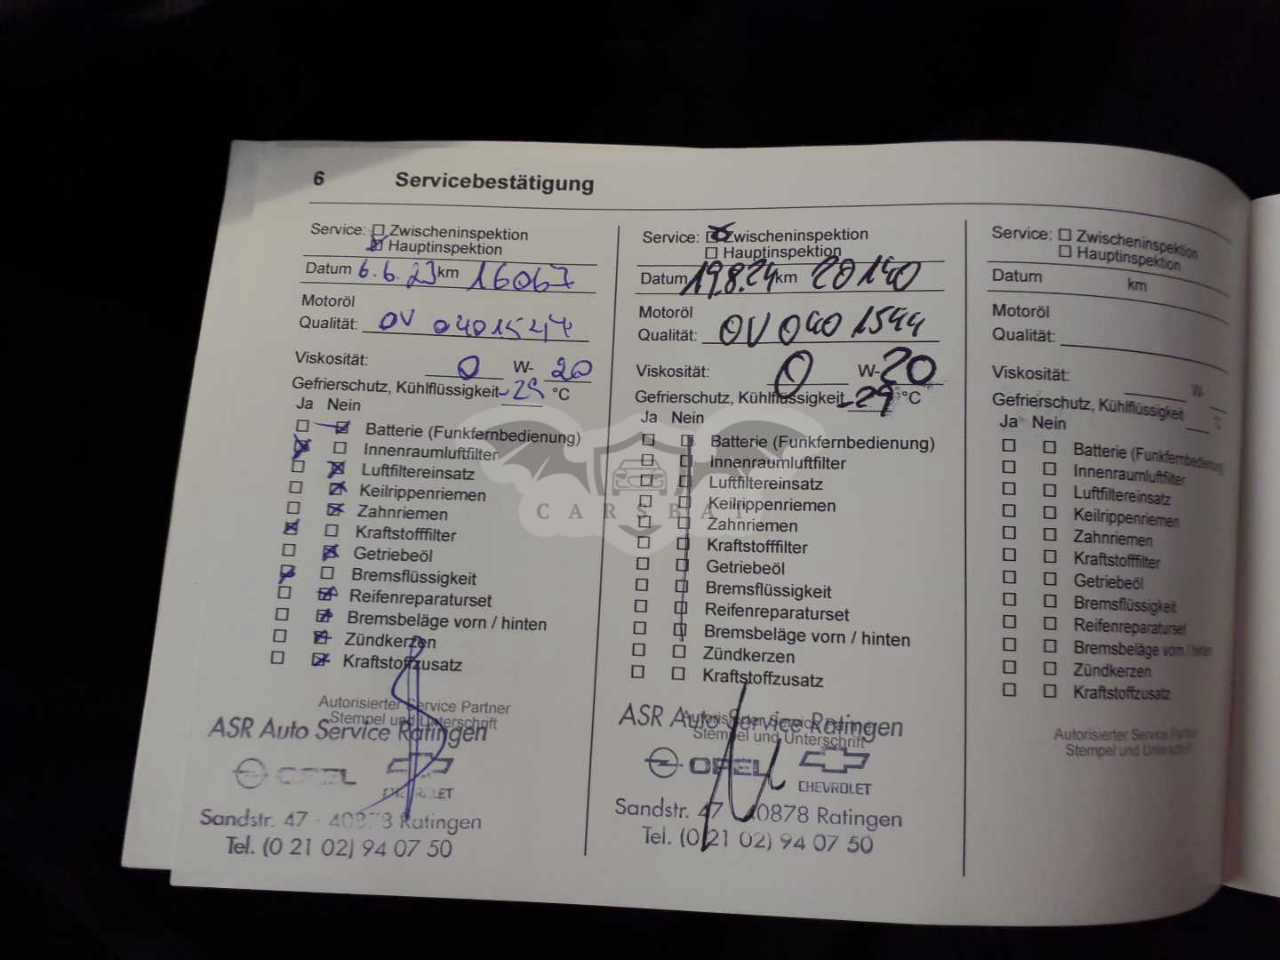 6 Servicebestätigung
Service: Zwischeninspektion
Hauptinspektion
Datum 6.6.23 km 16067
Motoröl
Qualität: OV 0401547
Viskosität: 0 W- 20
Gefrierschutz, Kühlflüssigkeit -29 °C
Ja Nein
Batterie (Funkfernbedienung)
Innenraumluftfilter
Luftfiltereinsatz
Keilrippenriemen
Zahnriemen
Kraftstofffilter
Getriebeöl
Bremsflüssigkeit
Reifenreparaturset
Bremsbeläge vorn / hinten
Zündkerzen
Kraftstoffzusatz
Autorisierter Service Partner
Stempel und Unterschrift
ASR Auto Service Ratingen
OPEL CHEVROLET
Sandstr. 47 - 40878 Ratingen
Tel. (0 21 02) 94 07 50
Service: Zwischeninspektion
Hauptinspektion
Datum 19.8.24 km 20140
Motoröl
Qualität: OV 040 1544
Viskosität: 0 W- 20
Gefrierschutz, Kühlflüssigkeit -29 °C
Ja Nein
Batterie (Funkfernbedienung)
Innenraumluftfilter
Luftfiltereinsatz
Keilrippenriemen
Zahnriemen
Kraftstofffilter
Getriebeöl
Bremsflüssigkeit
Reifenreparaturset
Bremsbeläge vorn / hinten
Zündkerzen
Kraftstoffzusatz
Autorisierter Service Partner
Stempel und Unterschrift
ASR Auto Service Ratingen
OPEL CHEVROLET
Sandstr. 47 40878 Ratingen
Tel. (0 21 02) 94 07 50
Service: Zwischeninspektion
Hauptinspektion
Datum km
Motoröl
Qualität:
Viskosität: W-
Gefrierschutz, Kühlflüssigkeit °C
Ja Nein
Batterie (Funkfernbedienung)
Innenraumluftfilter
Luftfiltereinsatz
Keilrippenriemen
Zahnriemen
Kraftstofffilter
Getriebeöl
Bremsflüssigkeit
Reifenreparaturset
Bremsbeläge vorn / hinten
Zündkerzen
Kraftstoffzusatz
Autorisierter Service Partner
Stempel und Unterschrift
CARSBAT